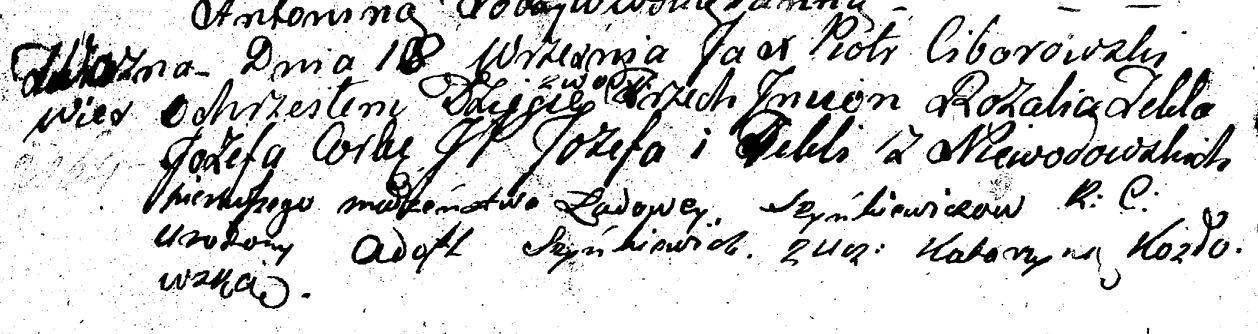 Antoniną
Dnia 18 Września Jax Piotr Ciborowski
wieś ochrzciłem Dziecię z wody Trzech Imion Rozalia Tekla
Jozefa Corkę JP Jozefa i Tekli z Niewodowskich
pierwszego małżeństwa Szyńkiewiczow R: C:
urodzony Adolf Szyńkiewicz. z Ur: Katarzyną Kozło.
wską.